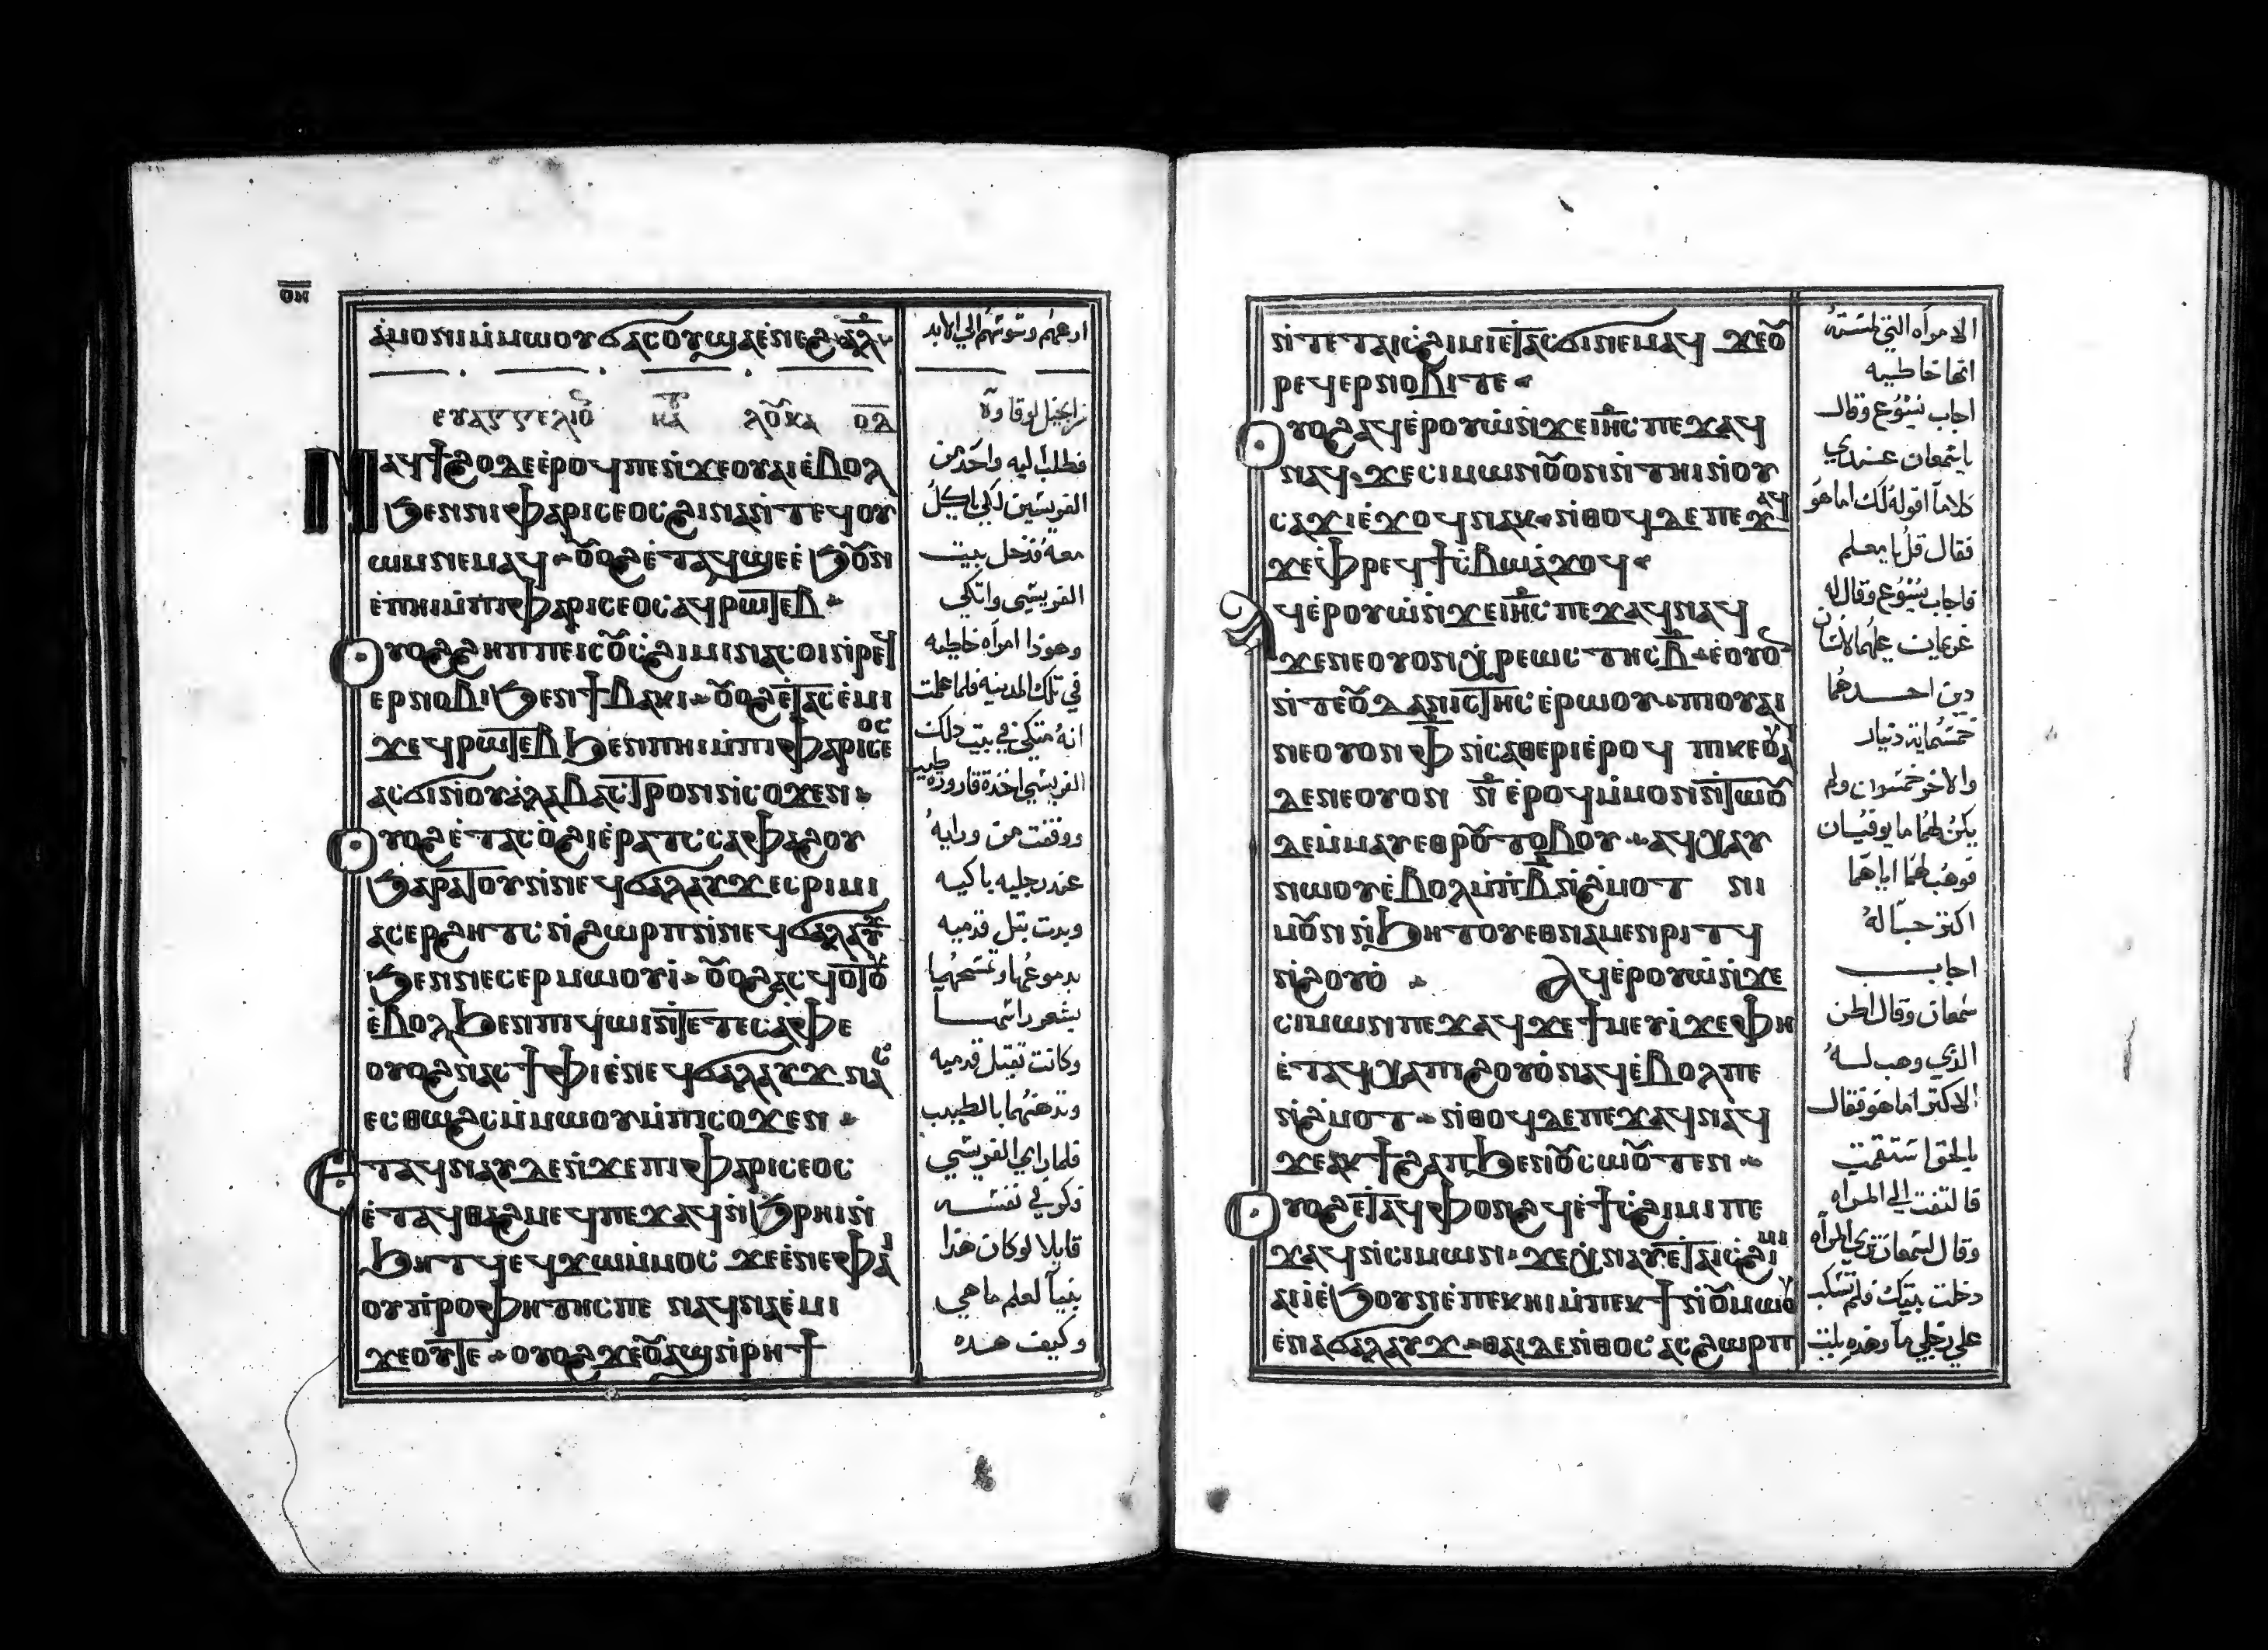 ⲁⲙⲟⲛⲓ ⲙⲙⲱⲟⲩ ϭⲁⲥⲟⲩ ϣⲁ ⲉⲛⲉϩ ⲁⲗ
ارعهم والي الابد
ⲉⲩⲁⲅⲅⲉⲗⲓⲟ ⲕⲁⲧ ⲗⲟⲩⲕⲁ ⲟⲇ
ⲛⲁϥϯϩⲟ ⲇⲉ ⲉⲣⲟϥ ⲡⲉ ⲛϫⲉ ⲟⲩⲁⲓ ⲉⲃⲟⲗ
ϧⲉⲛ ⲛⲓⲫⲁⲣⲓⲥⲉⲟⲥ ϩⲓⲛⲁ ⲛⲧⲉϥⲟⲩ
ⲱⲙ ⲛⲉⲙⲁϥ ⲟⲩⲟϩ ⲉⲧⲁϥϣⲉ ⲉϧⲟⲩⲛ
ⲉⲡⲏⲓ ⲙⲡⲓⲫⲁⲣⲓⲥⲉⲟⲥ ⲁϥⲣⲱⲧⲉⲃ
ⲟⲩⲟϩ ϩⲏⲡⲡⲉ ⲓⲥ ⲟⲩⲥϩⲓⲙⲓ ⲛⲁⲥⲟⲓ ⲛⲣⲉϥ
ⲉⲣⲛⲟⲃⲓ ϧⲉⲛ ϯⲃⲁⲕⲓ ⲟⲩⲟϩ ⲉⲧⲁⲥⲉⲙⲓ
ϫⲉ ϥⲣⲱⲧⲉⲃ ϧⲉⲛ ⲡⲏⲓ ⲙⲡⲓⲫⲁⲣⲓⲥⲉⲟⲥ
ⲁⲥϭⲓ ⲛⲟⲩⲁⲗⲁⲃⲁⲥⲧⲣⲟⲛ ⲛⲥⲟϫⲉⲛ
ⲟⲩⲟϩ ⲉⲧⲁⲥⲟϩⲓ ⲉⲣⲁⲧⲥ ⲥⲁⲫⲁϩⲟⲩ
ϧⲁⲣⲁⲧⲟⲩ ⲛⲛⲉϥϭⲁⲗⲁⲩϫ ⲉⲥⲣⲓⲙⲓ
ⲁⲥⲉⲣϩⲏⲧⲥ ⲛϩⲱⲣⲡ ⲛⲛⲉϥϭⲁⲗⲁⲩϫ
ϧⲉⲛ ⲛⲉⲥⲉⲣⲙⲱⲟⲩⲓ ⲟⲩⲟϩ ⲁⲥϥⲟⲧⲟⲩ
ⲉⲃⲟⲗ ϧⲉⲛ ⲡⲓϥⲱⲓ ⲛⲧⲉ ⲧⲉⲥⲁⲫⲉ
ⲟⲩⲟϩ ⲛⲁⲥϯⲫⲓ ⲉⲛⲉϥϭⲁⲗⲁⲩϫ ⲛⲁⲥ
ⲉⲥⲑⲱϩⲥ ⲙⲙⲱⲟⲩ ⲙⲡⲓⲥⲟϫⲉⲛ
ⲉⲧⲁϥⲛⲁⲩ ⲇⲉ ⲛϫⲉ ⲡⲓⲫⲁⲣⲓⲥⲉⲟⲥ
ⲉⲧⲁϥⲑⲁϩⲙⲉϥ ⲡⲉϫⲁϥ ⲛϧⲣⲏⲓ ⲛ
ϧⲏⲧϥ ⲉϥϫⲱ ⲙⲙⲟⲥ ϫⲉ ⲉⲛⲉ ⲫⲁⲓ
ⲟⲩⲡⲣⲟⲫⲏⲧⲏⲥ ⲡⲉ ⲛⲁϥⲛⲁⲉⲙⲓ
ϫⲉ ⲟⲩ ⲧⲉ ⲟⲩⲟϩ ϫⲉ ⲟⲩⲁϣ ⲛⲣⲏϯ
فطلب اليه واحد من
الفريسيين لكي ياكل
معه فدخل بيت
الفريسي واتكي
وهوذا امراه خاطيه
في تلك المدينه فلما علمت
انه متكي في بيت ذلك
الفريسي اخذة قارورة طيب
ووقفت من ورايه
عند رجليه باكيه
وبدت تبل قدميه
بدموعها وتمسحهما
بشعر راسها
وكانت تقبل قدميه
وتدهنهما بالطيب
فلما راي الفريسي
فكر في نفسه
قايلا لو كان هذا
نبيا لعلم ما هي
وكيف هذه
ⲛⲧⲉ ⲧⲁⲓⲥϩⲓⲙⲓ ⲉⲧⲁⲥϭⲓ ⲛⲉⲙⲁϥ ϫⲉ ⲟⲩ
ⲣⲉϥⲉⲣⲛⲟⲃⲓ ⲧⲉ
ⲟⲩⲟϩ ⲁϥⲉⲣⲟⲩⲱ ⲛϫⲉ ⲓⲏⲥ ⲡⲉϫⲁϥ
ⲛⲁϥ ϫⲉ ⲥⲓⲙⲱⲛ ⲟⲩⲟⲛ ⲛⲧⲏⲓ ⲛⲟⲩ
ⲥⲁϫⲓ ⲉϫⲟϥ ⲛⲁⲕ ⲛⲑⲟϥ ⲇⲉ ⲡⲉϫⲁϥ
ϫⲉ ⲫⲣⲉϥϯⲥⲃⲱ ⲁϫⲟϥ
ⲁϥⲉⲣⲟⲩⲱ ⲛϫⲉ ⲓⲏⲥ ⲡⲉϫⲁϥ ⲛⲁϥ
ϫⲉ ⲛⲉ ⲟⲩⲟⲛ ⲭⲣⲉⲱⲥⲧⲏⲥ ⲃ ⲉⲟⲩⲟ
ⲛⲧⲉ ⲟⲩⲇⲁⲛⲓⲥⲧⲏⲥ ⲉⲣⲱⲟⲩ ⲡⲓⲟⲩⲁⲓ
ⲛⲉ ⲟⲩⲟⲛ ⲫ ⲛⲥⲁⲑⲉⲣⲓ ⲉⲣⲟϥ ⲡⲓⲕⲉⲟⲩⲁ
ⲇⲉ ⲛⲉ ⲟⲩⲟⲛ ⲛ ⲉⲣⲟϥ ⲙⲙⲟⲛ ⲛⲧⲱⲟⲩ
ⲇⲉ ⲙⲙⲁⲩ ⲉⲑⲣⲟⲩⲧⲟⲃⲟⲩ ⲁϥⲭⲁⲩ
ⲛⲱⲟⲩ ⲉⲃⲟⲗ ⲙⲡⲃ ⲛϩⲙⲟⲧ ⲛⲓ
ⲙ ⲟⲩⲛ ⲛϧⲏⲧⲟⲩ ⲉⲑⲛⲁⲙⲉⲛⲣⲓⲧϥ
ⲛϩⲟⲩⲟ ⲁϥⲉⲣⲟⲩⲱ ⲛϫⲉ
ⲥⲓⲙⲱⲛ ⲡⲉϫⲁϥ ϫⲉ ϯⲙⲉⲩⲓ ϫⲉ ⲫⲏ
ⲉⲧⲁϥⲭⲁ ⲡⲓϩⲟⲩⲟ ⲛⲁϥ ⲉⲃⲟⲗ ⲡⲉ
ⲛϩⲙⲟⲧ ⲛⲑⲟϥ ⲇⲉ ⲡⲉϫⲁϥ ⲛⲁϥ
ϫⲉ ⲁⲕϯϩⲁⲡ ϧⲉⲛ ⲟⲩⲥⲱⲟⲩⲧⲉⲛ
ⲟⲩⲟϩ ⲉⲧⲁϥⲫⲟⲛϩϥ ⲉϯⲥϩⲓⲙⲓ ⲡⲉ
ϫⲁϥ ⲛⲥⲓⲙⲱⲛ ϫⲉ ⲭⲛⲁⲩ ⲉⲧⲁⲓⲥϩⲓⲙⲓ
ⲁⲓⲓ ⲉϧⲟⲩⲛ ⲉⲡⲉⲕⲏⲓ ⲙⲡⲉⲕϯ ⲛⲟⲩⲙⲱⲟⲩ
ⲉⲛⲁϭⲁⲗⲁⲩϫ ⲑⲁⲓ ⲇⲉ ⲛⲑⲟⲥ ⲁⲥϩⲱⲣⲡ
الامراه التي لمسته
انها خاطيه
اجاب يسوع وقال
ياسمعان عندي
كلاما اقوله لك اما هو
فقال قل يا معلم
فاجاب يسوع وقال له
غريمان عليهما لانسان
دين احدهما
خمسماية دينار
والاخر خمسون ولم
يكن لهما ما يوفيان
فوهب لهما اياهما
اكثر حبا له
اجاب
سمعان وقال اظن
الذي وهب له
الاكثر اما هو فقال
بالحق استقمت
فالتفت الي المراه
وقال لسمعان تري المراه
دخلت بيتك فلم تسكب
علي رجلي ما وهذه بلت